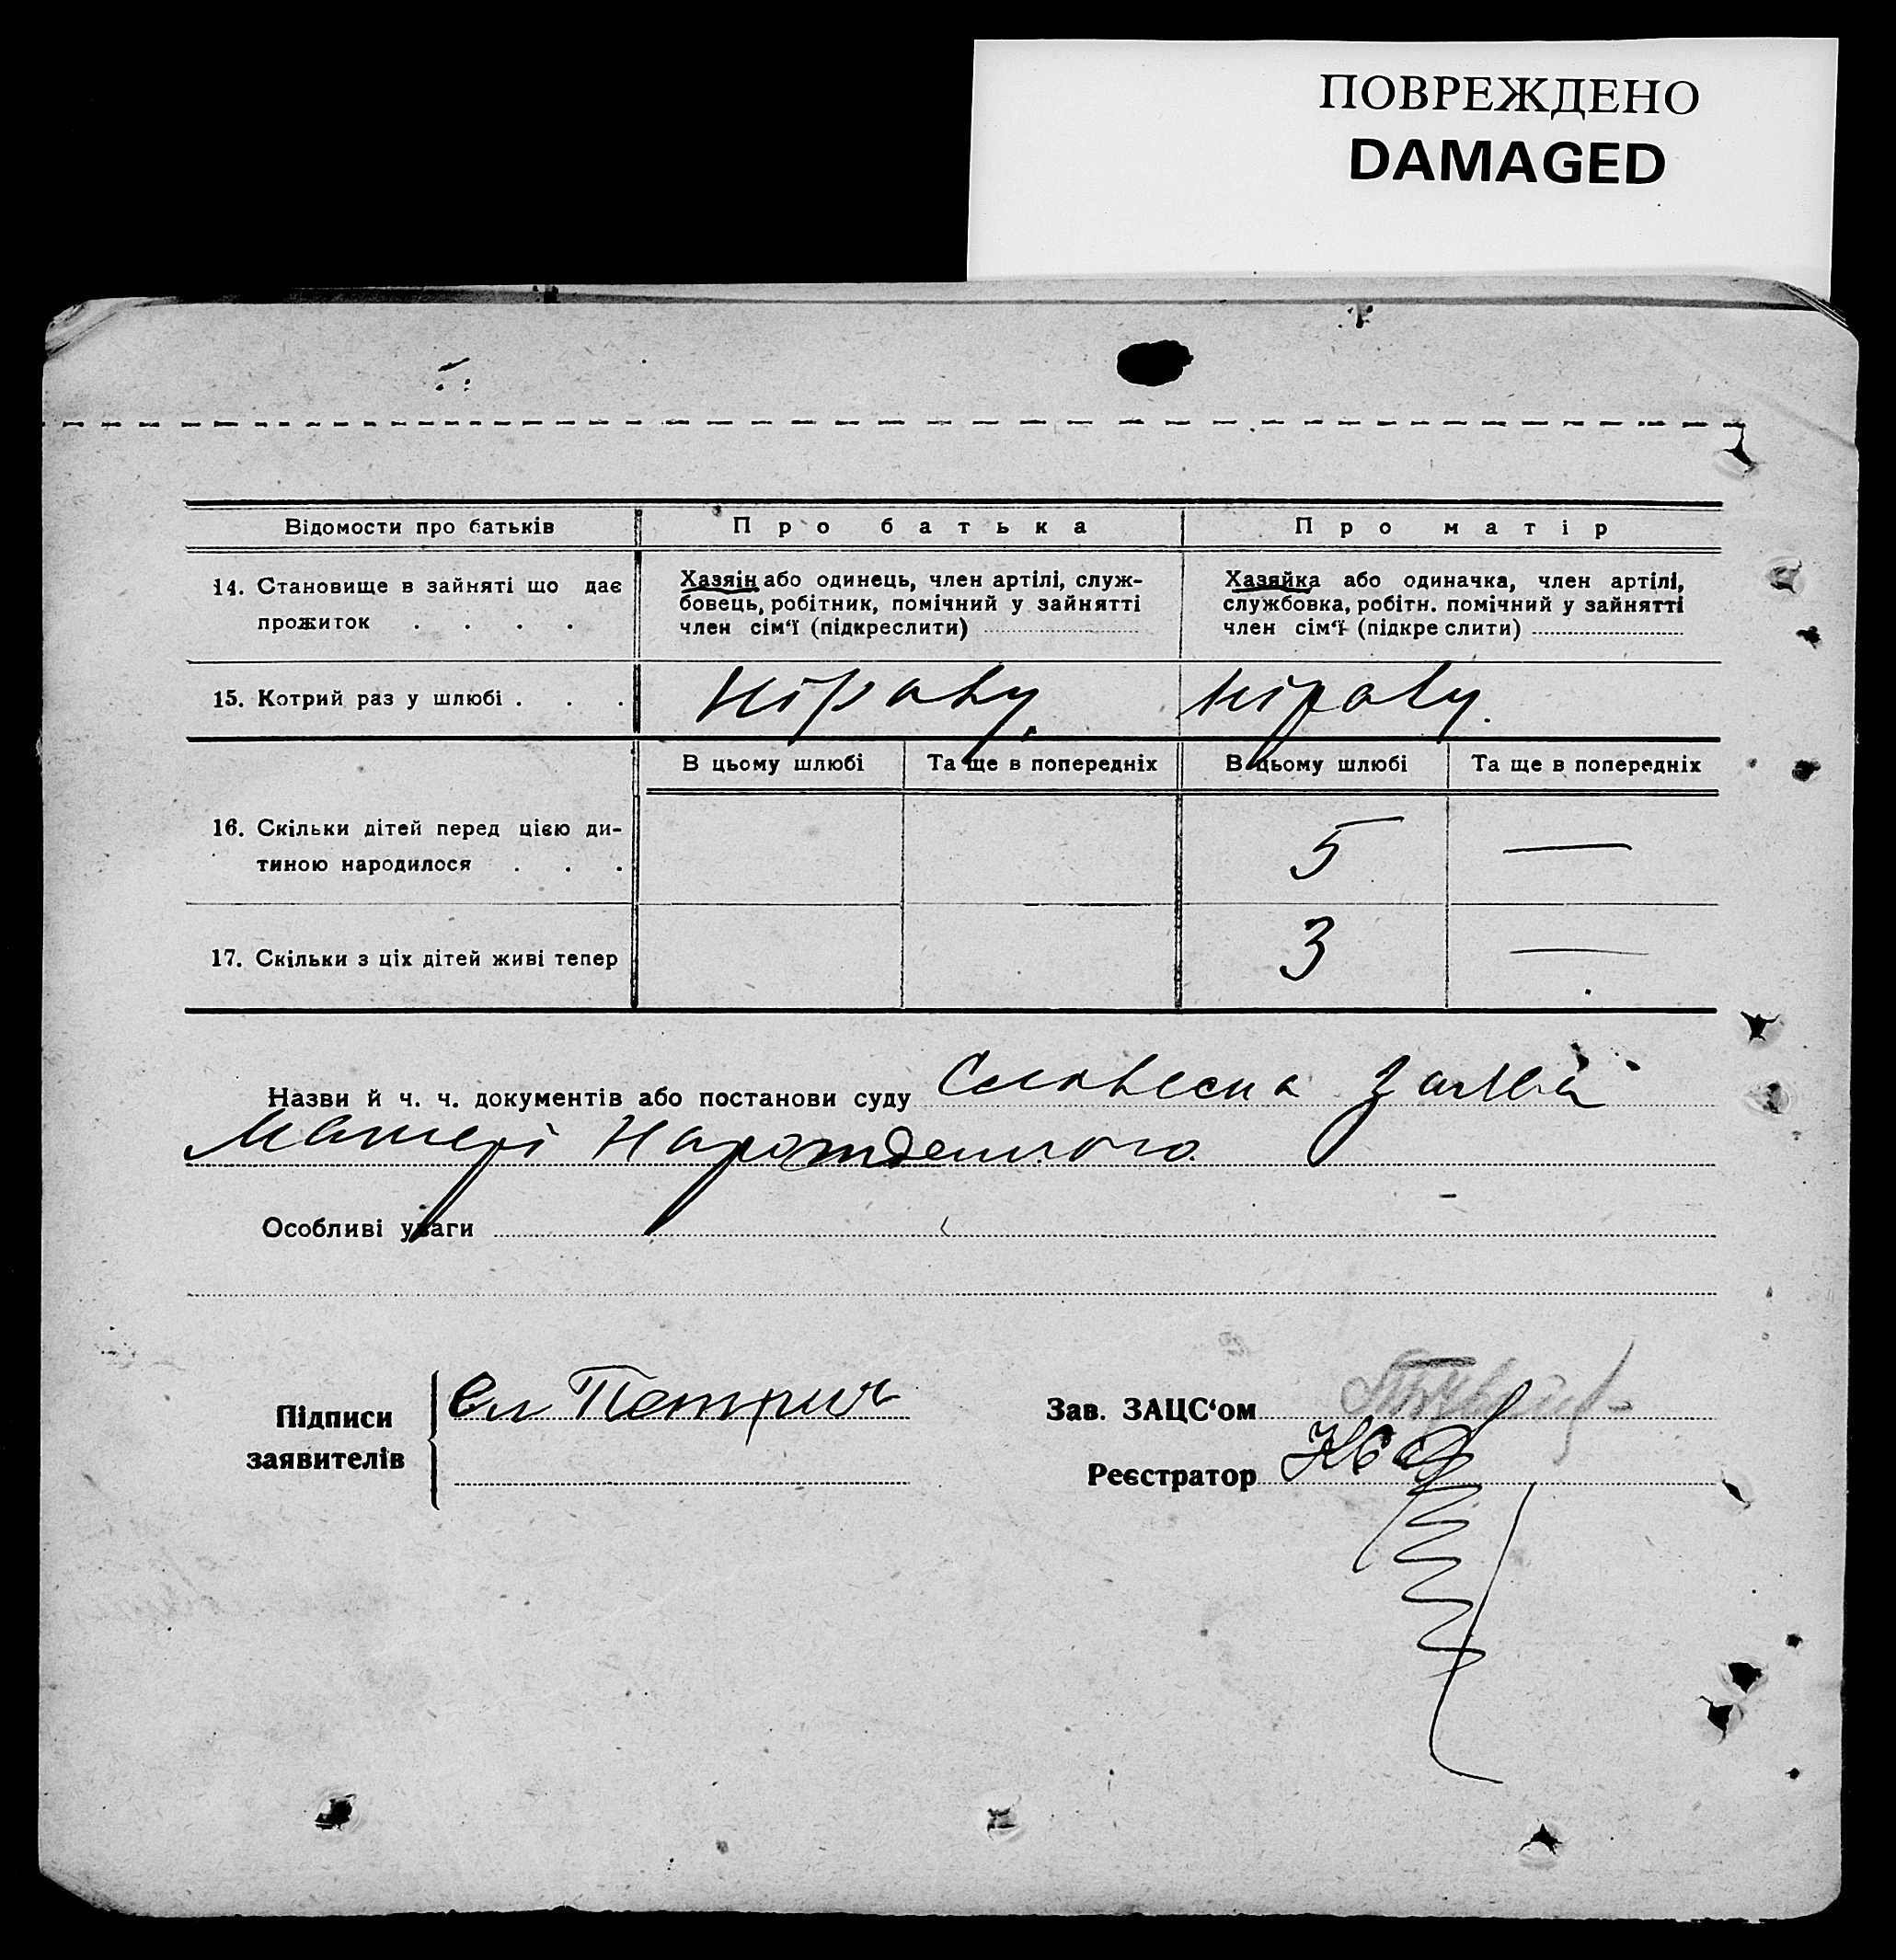 ПОВРЕЖДЕНО
DAMAGED
Відомости про батьків
Про батька
Про матір
14. Становище в зайняті що дає
прожиток . . . .
Хазяїн або одинець, член артілі, служ-
бовець, робітник, помічний у зайнятті
член сім‘ї (підкреслити)
Хазяйка або одиначка, член артілі,
службовка, робітн. помічний у зайнятті
член сім‘ї (підкреслити)
15. Котрий раз у шлюбі . . .
В цьому шлюбі
Та ще в попередніх
В цьому шлюбі
Та ще в попередніх
16. Скільки дітей перед цією ди-
тиною народилося . . .
5 —
17. Скільки з ціх дітей живі тепер
3 —
Назви й ч. ч. документів або постанови суду Словесна заява
Матері Нарожденного
Особливі уваги
Підписи
заявителів
Зав. ЗАЦС‘ом
Реєстратор